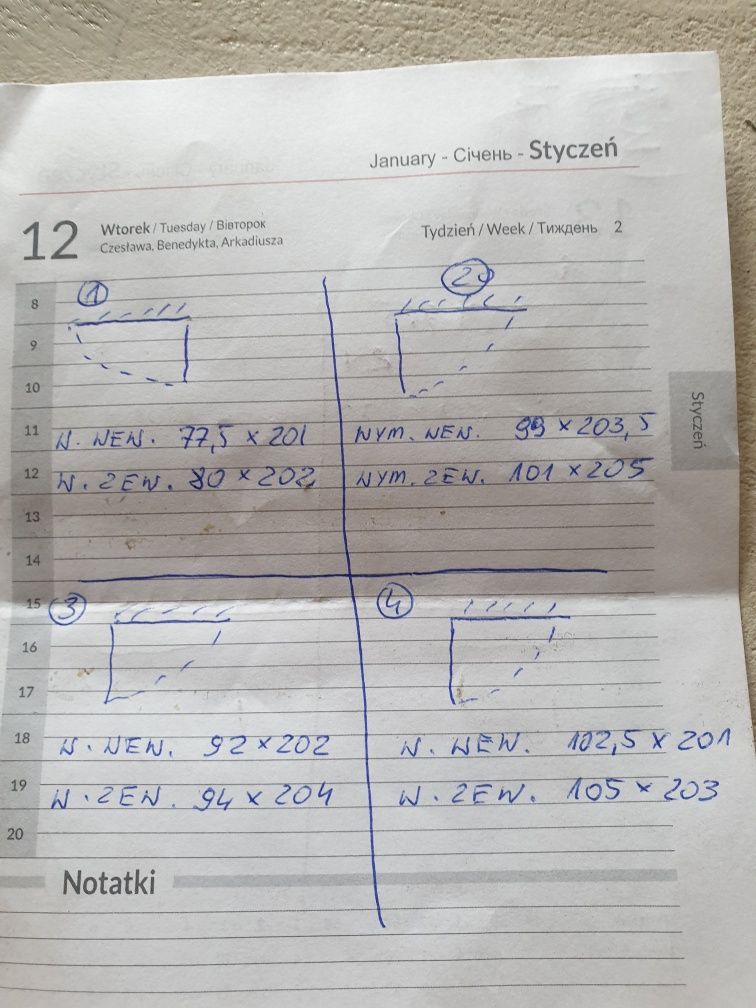 January - Січень - Styczeń
12
Wtorek / Tuesday / Вівторок
Czesława, Benedykta, Arkadiusza
Tydzień / Week / Тиждень 2
Styczeń
8
9
10
11
12
13
14
15
16
17
18
19
20
1
W. WEW. 77,5 x 201
W. ZEW. 80 x 202
2
WYM. WEW. 99 x 203,5
WYM. ZEW. 101 x 205
3
W. WEW. 92 x 202
W. ZEW. 94 x 204
4
W. WEW. 102,5 x 201
W. ZEW. 105 x 203
Notatki